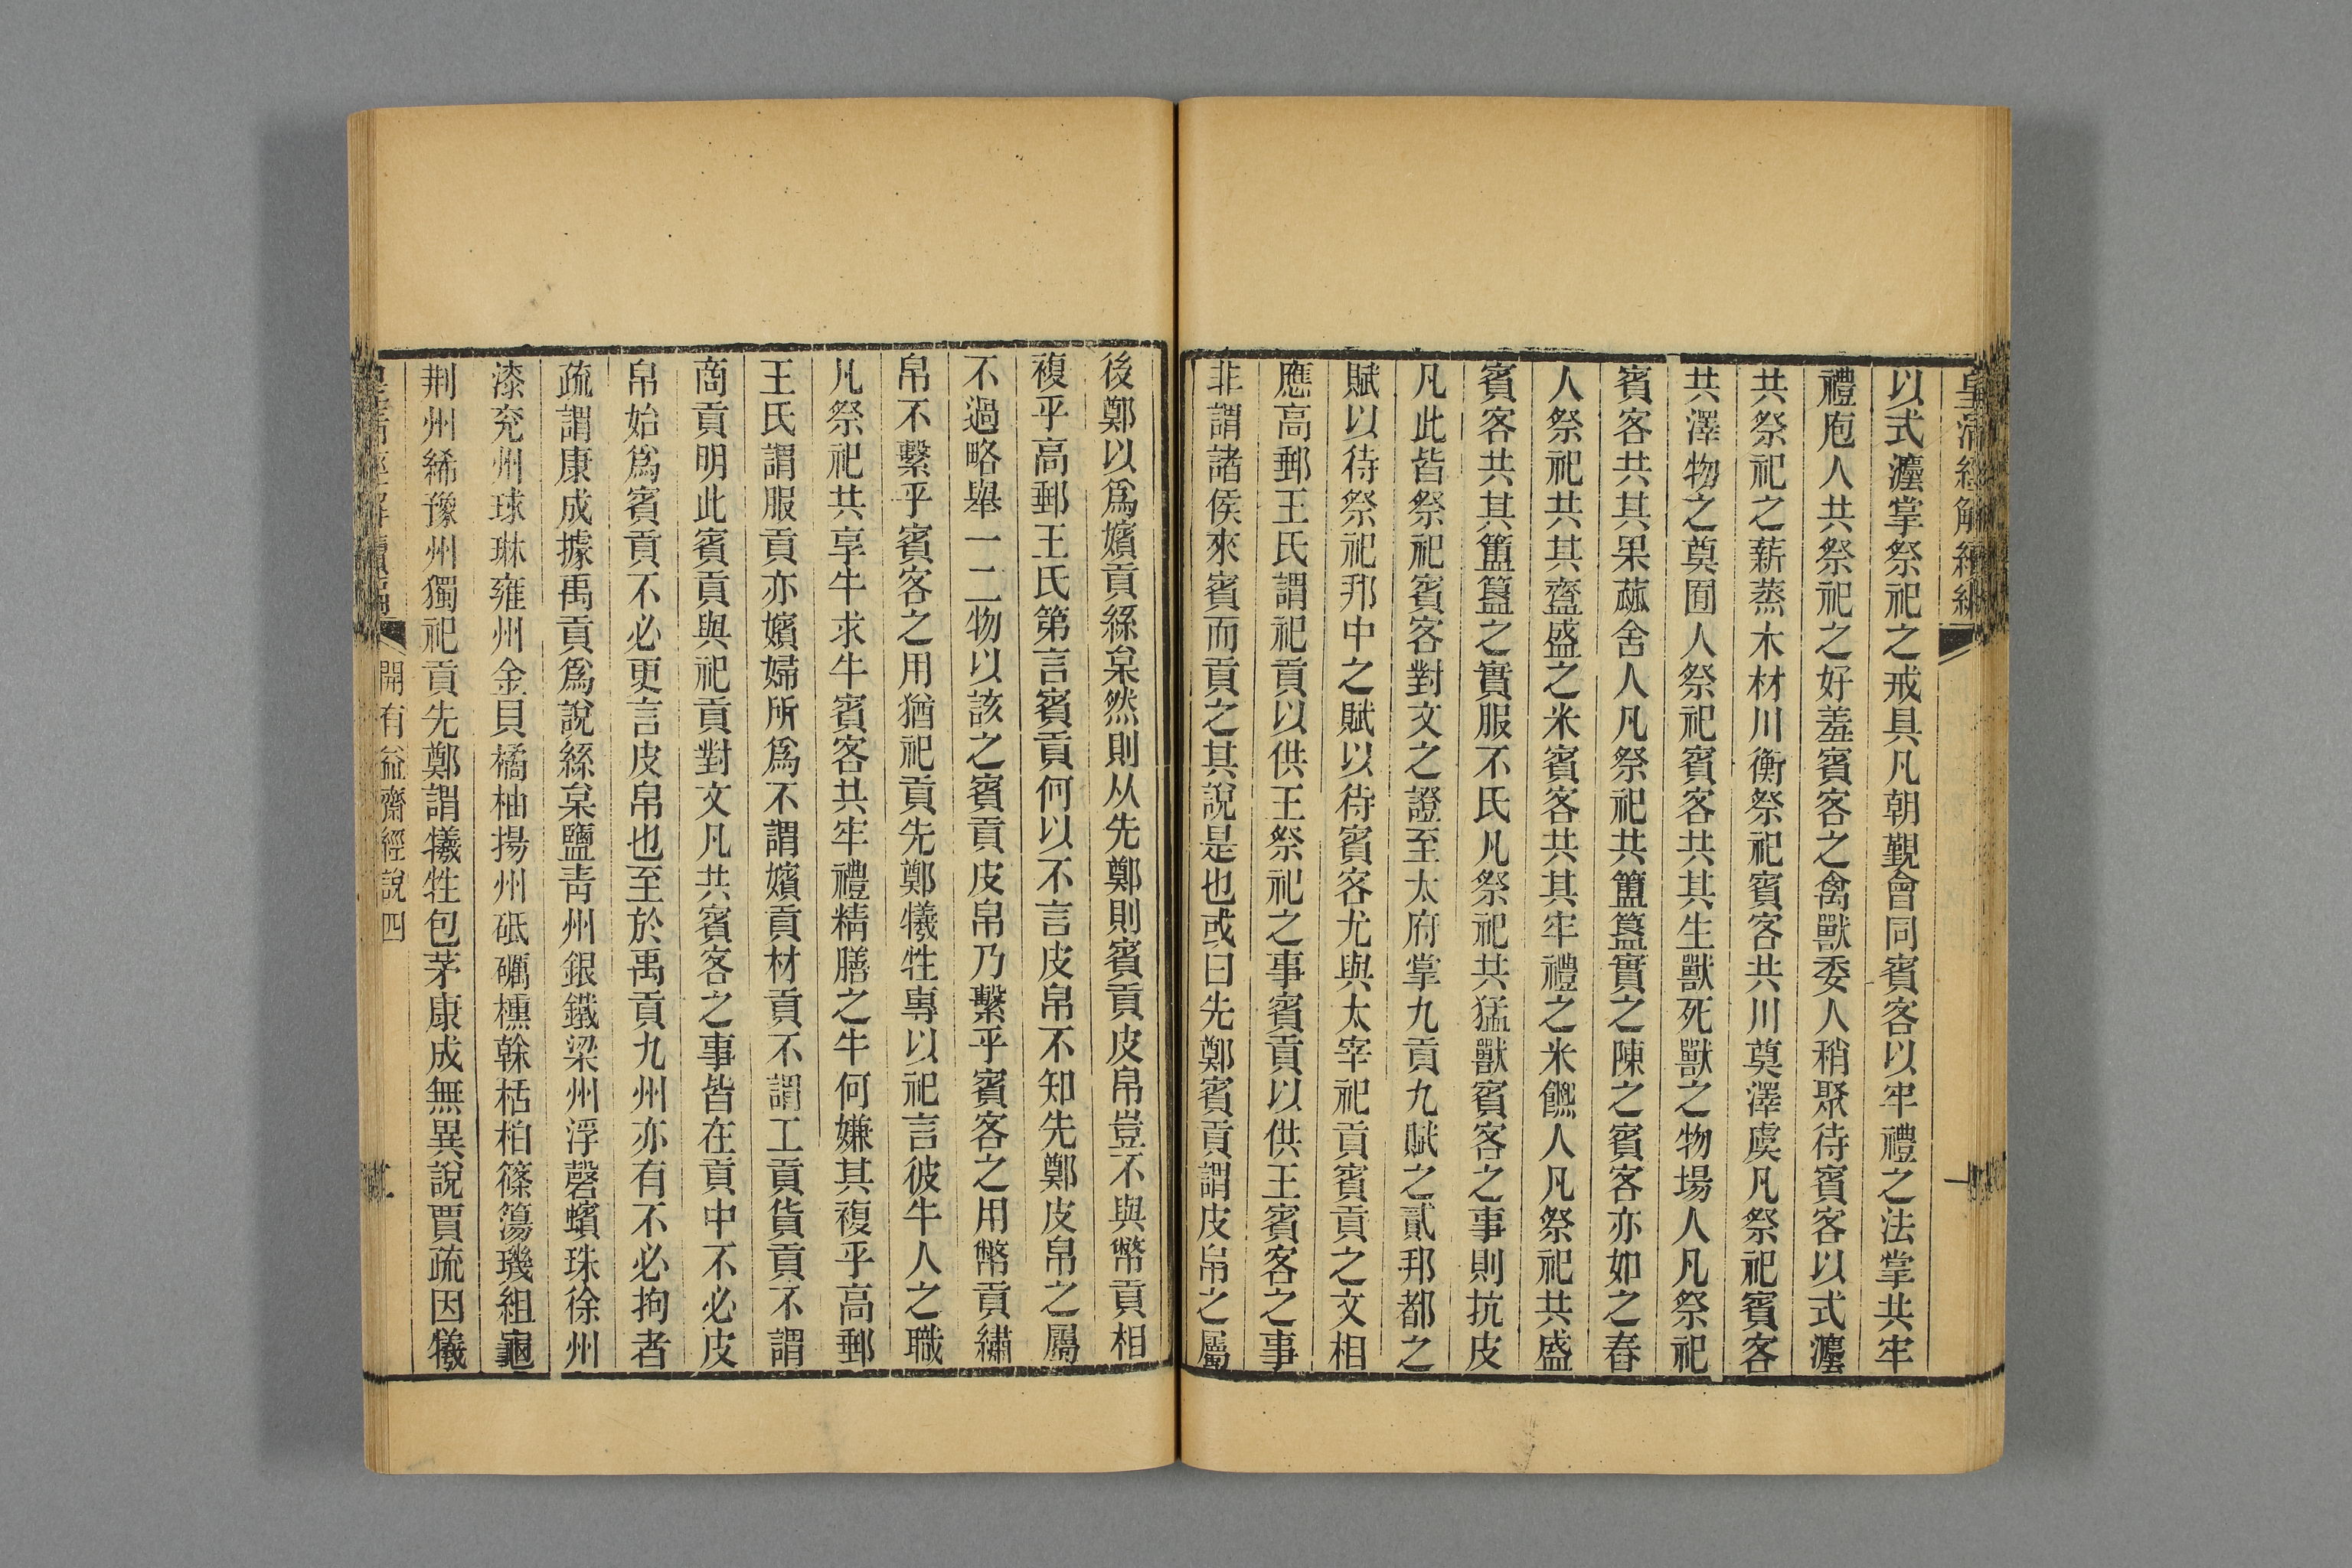 皇清經解續編
以式灋掌祭祀之戒具凡朝覲會同賓客以牢禮之法掌共牢
禮庖人共祭祀之好羞賓客之禽獸委人稍聚待賓客以式灋
共祭祀之薪蒸木材川衡祭祀賓客共川奠澤虞凡祭祀賓客
共澤物之奠囿人祭祀賓客共其生獸死獸之物場人凡祭祀
賓客共其果蓏舍人凡祭祀共簠簋實之陳之賓客亦如之舂
人祭祀共其齍盛之米賓客共其牢禮之米饎人凡祭祀共盛
賓客共其簠簋之實服不氏凡祭祀共猛獸賓客之事則抗皮
凡此皆祭祀賓客對文之證至太府掌九貢九賦之貳邦都之
賦以待祭祀邦中之賦以待賓客尤與太宰祀貢賓貢之文相
應高郵王氏謂祀貢以供王祭祀之事賓貢以供王賓客之事
非謂諸侯來賓而貢之其說是也或曰先鄭賓貢謂皮帛之屬
後鄭以爲嬪貢絲枲然則从先鄭則賓貢皮帛豈不與幣貢相
複乎高郵王氏第言賓貢何以不言皮帛不知先鄭皮帛之屬
不過略舉一二物以該之賓貢皮帛乃繫乎賓客之用幣貢繡
帛不繫乎賓客之用猶祀貢先鄭犧牲專以祀言彼牛人之職
凡祭祀共享牛求牛賓客共牢禮精膳之牛何嫌其複乎高郵
王氏謂服貢亦嬪婦所爲不謂嬪貢材貢不謂工貢貨貢不謂
商貢明此賓貢與祀貢對文凡共賓客之事皆在貢中不必皮
帛始爲賓貢不必更言皮帛也至於禹貢九州亦有不必拘者
疏謂康成據禹貢爲說絲枲鹽靑州銀鐵梁州浮磬蠙珠徐州
漆兖州球琳雍州金貝橘柚揚州砥礪櫄榦栝柏篠簜璣組龜
荆州絺豫州獨祀貢先鄭謂犧牲包茅康成無異說賈疏因犧
皇淸經解續編
開有益齋經說四